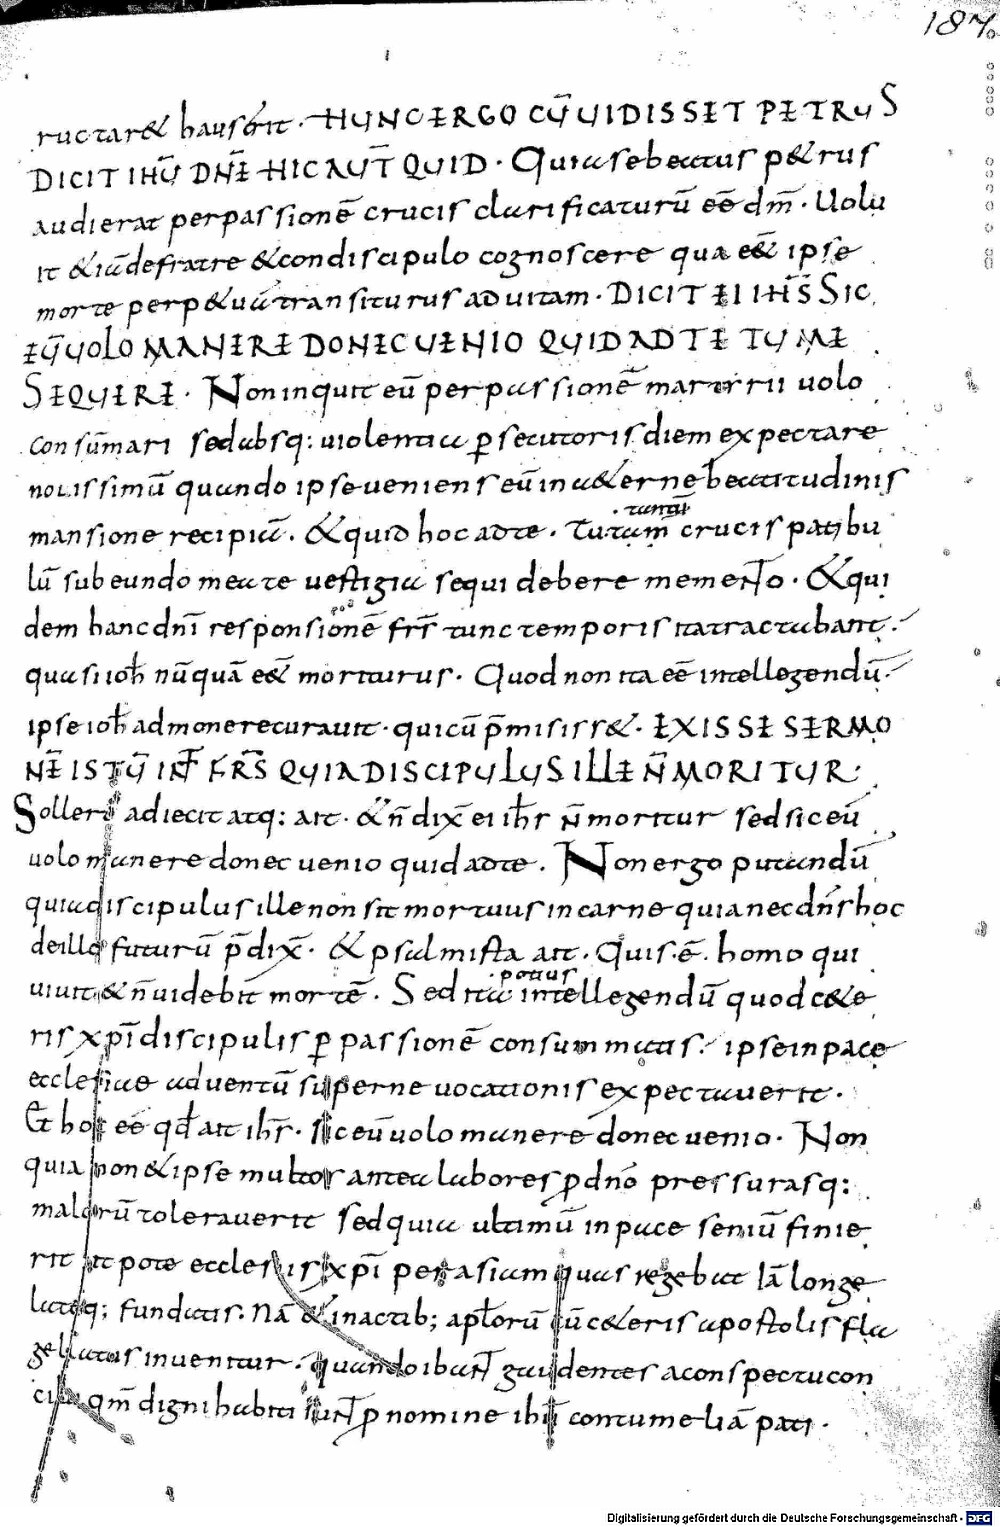 187
ructar& hauserit. HUNC ERGO CŪ UIDISSET PETRUS
DICIT IHŪ DNE HIC AUT QUID. Quia se beatus p&rus
audierat per passionē crucis clarificaturū eē dm̄. Uolu
it & iā de fratre & condiscipulo cognoscere qua e& ipse
morte perp&uā transiturus ad uitam. DICIT EI IHS̄ SIC
EŪ UOLO MANERE DONEC UENIO QUID AD TE TU ME
SEQUERE. Non inquit eū per passionē martirii uolo
consūmari sed absq: uiolentia p̱secutoris diem expectare
nouissimū quando ipse ueniens eū in a&erne beatitudinis
mansione recipiā. & quid hoc ad te. Tu tam̄ crucis patibu
tantū
lū subeundo mea te uestigia sequi debere memento. & qui
dem hanc dnī responsionē frs̄ tunc temporis ita tractabant.
quasi ioh̄ nūquā e& moriturus. Quod non ita eē intellegendū.
ipse ioh̄ admonere curauit. qui cū p̄misiss&. EXIIS SE SERMO
NE ISTŪ INT̄ FRS̄ QUIA DISCIPULUS ILLE N̄ MORITUR.
Sollers adiecit atq: ait. & n̄ dix̄ ei ihs̄ n̄ moritur sed sic eū
uolo manere donec uenio quid ad te. Non ergo putandū
quia discipulus ille non sit mortuus in carne quia nec dns̄ hoc
de illo futurū p̄dix̄. & psalmista ait. Quis ē homo qui
uiuit & n̄ uidebit mortē. Sed ita intellegendū quod c&e
potius
ris xp̄i discipulis p̱ passionē consummatis. ipse in pace
ecclesiae aduentū superne uocationis expectauerit.
Et hoc eē qd̄ ait ihs̄. sic eū uolo manere donec uenio. Non
quia non & ipse multos antea labores p̱ dnō pressurasq:
malorū tolerauerit sed quia ultimū in pace seniū finie
rit ut pote ecclesiis xp̄i per asiam quas regebat iā longe
lateq; fundatis. Nā & in actib; aplōrū cū c&eris apostolis fla
gellatus inuenitur. quando ibant gaudentes a conspectu con
cilii qm̄ digni habiti sunt p̱ nomine ihū contumeliā pati.
Digitalisierung gefördert durch die Deutsche Forschungsgemeinschaft - DFG